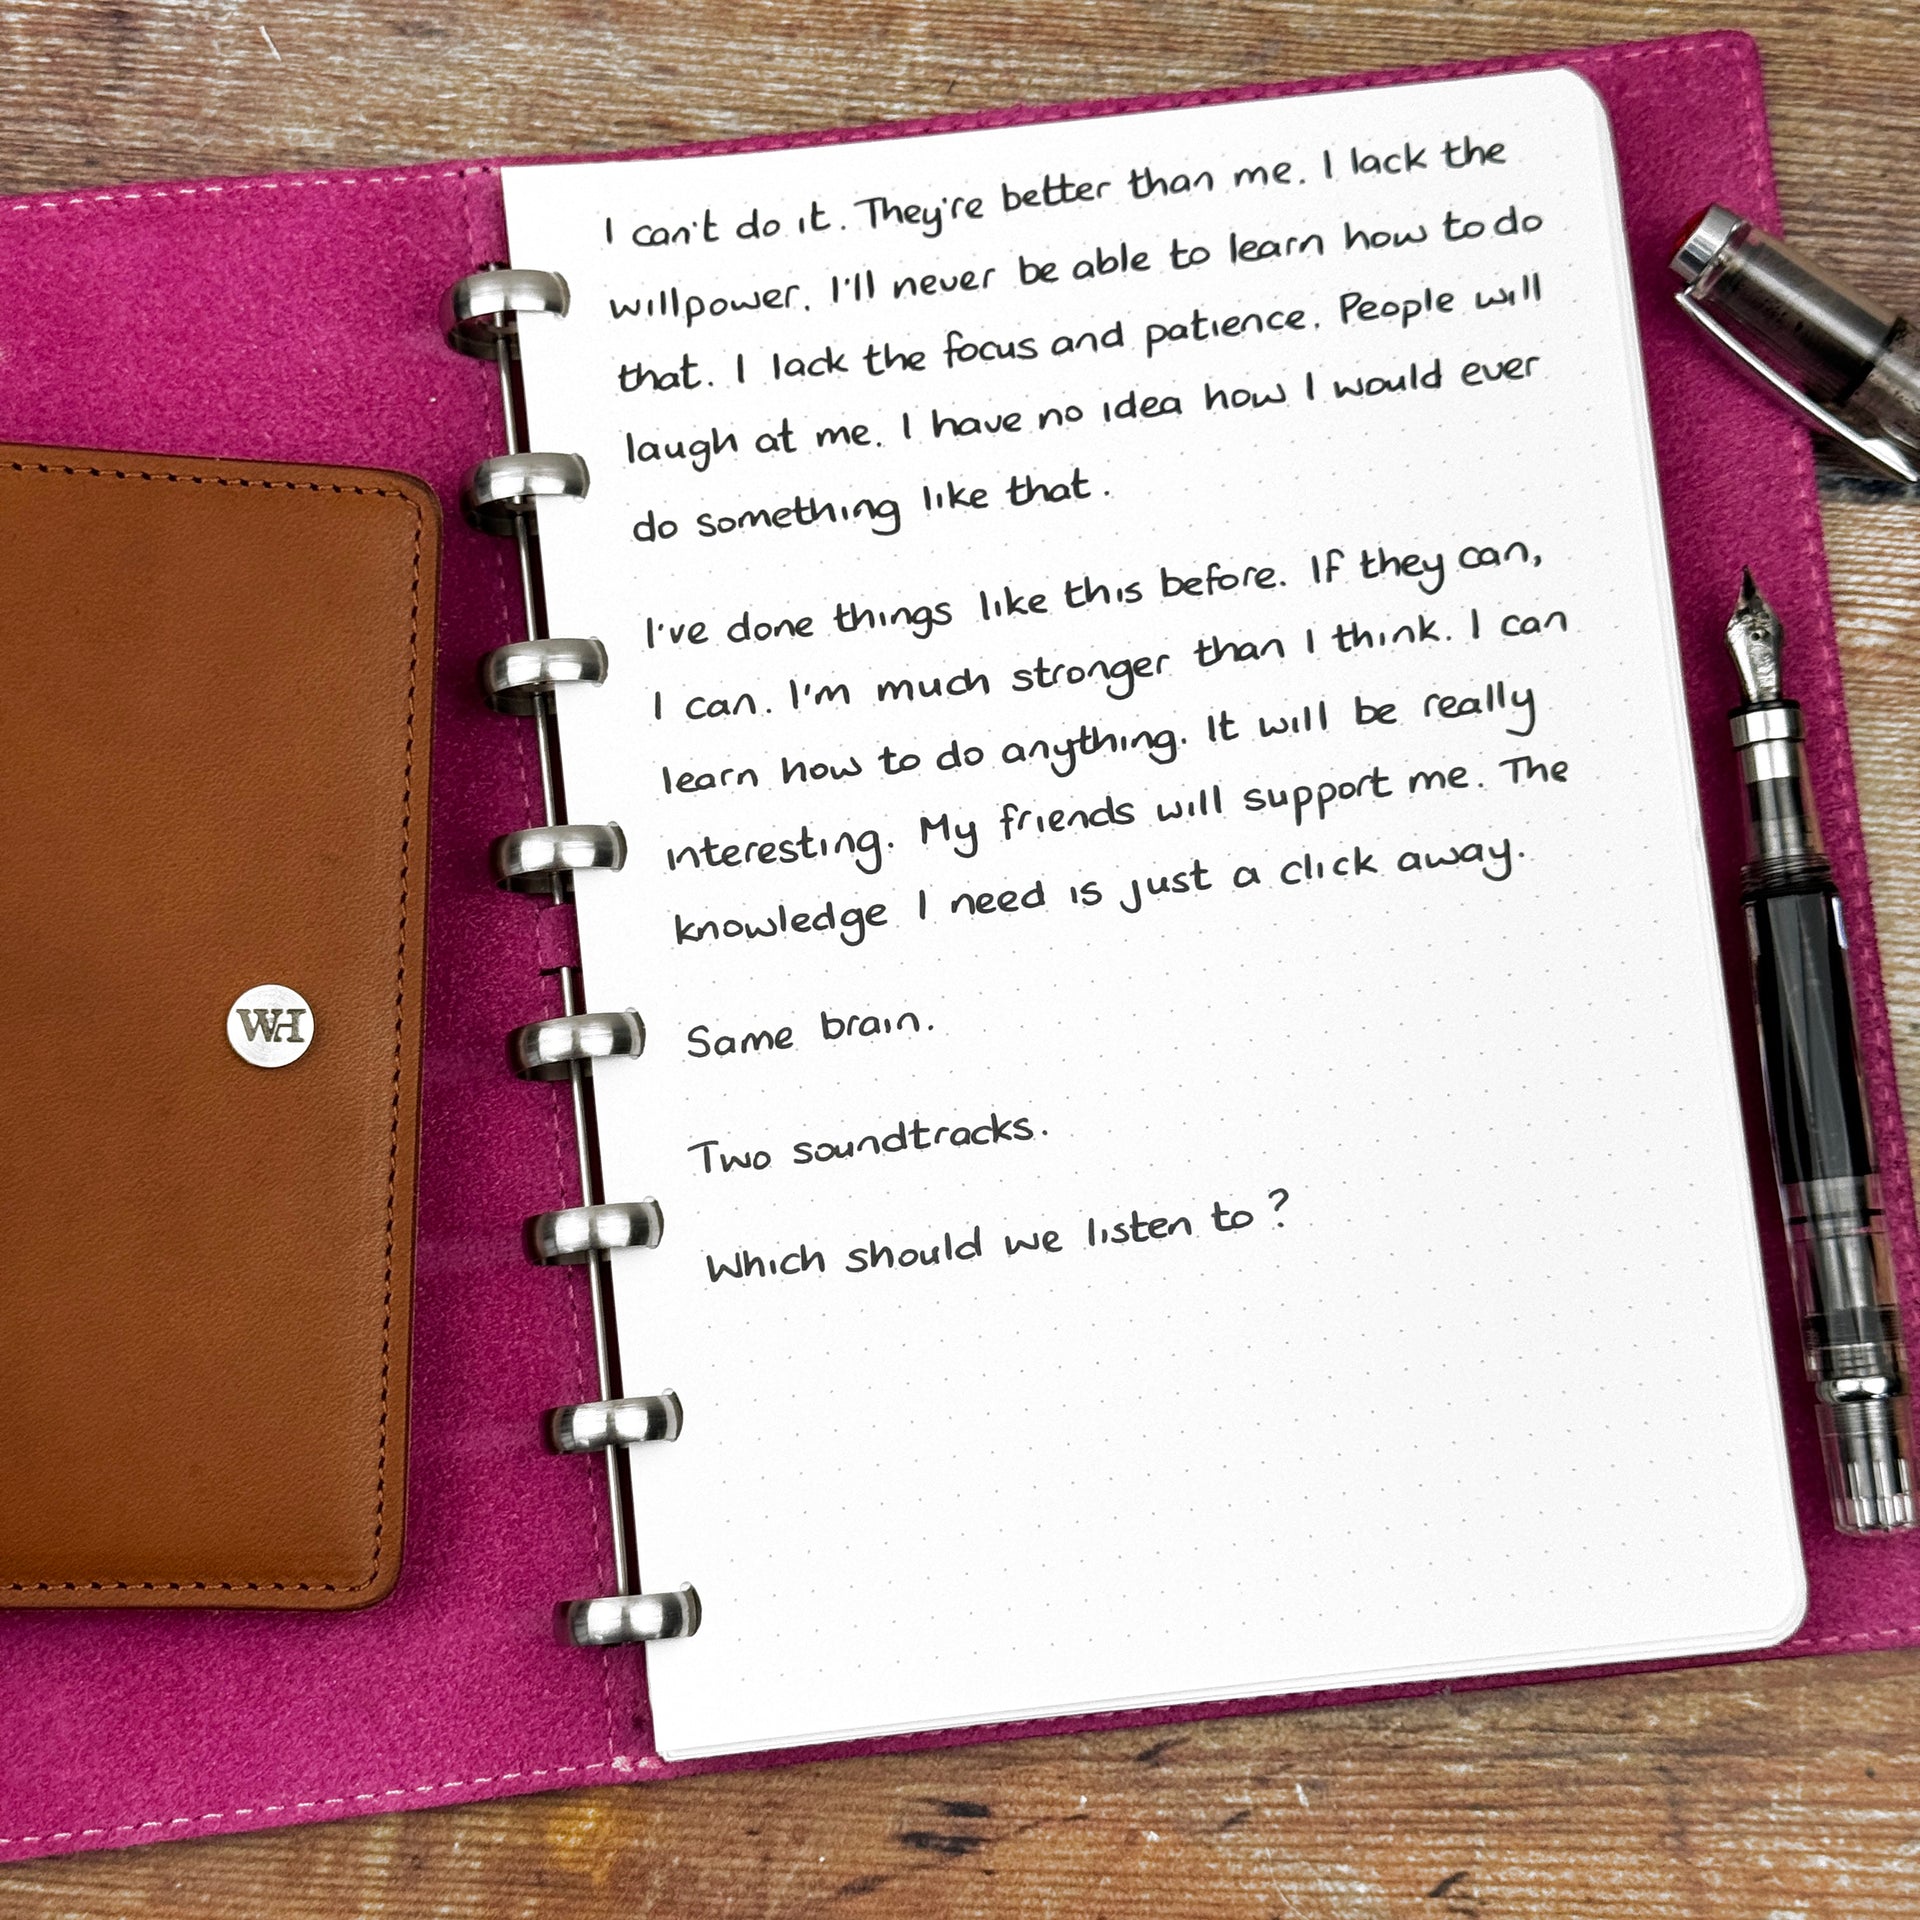 I can't do it. They're better than me. I lack the
willpower. I'll never be able to learn how to do
that. I lack the focus and patience. People will
laugh at me. I have no idea how I would ever
do something like that.
I've done things like this before. If they can,
I can. I'm much stronger than I think. I can
learn how to do anything. It will be really
interesting. My friends will support me. The
knowledge I need is just a click away.
Same brain.
Two soundtracks.
Which should we listen to?
WH